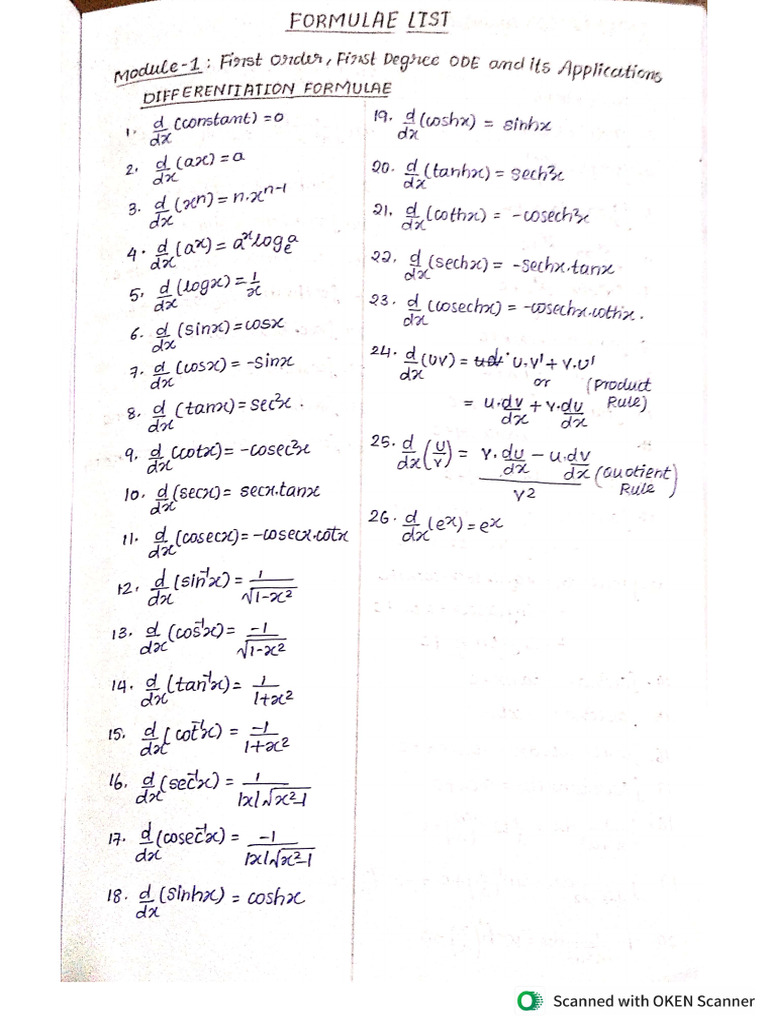 FORMULAE LIST
Module-1: First Order, First Degree ODE and its Applications
DIFFERENTIATION FORMULAE
1. d/dx (constant) = 0
2. d/dx (ax) = a
3. d/dx (xⁿ) = n.xⁿ⁻¹
4. d/dx (aˣ) = aˣ logₑa
5. d/dx (logx) = 1/x
6. d/dx (sinx) = cosx
7. d/dx (cosx) = -sinx
8. d/dx (tanx) = sec²x.
9. d/dx (cotx) = -cosec²x
10. d/dx (secx) = secx.tanx
11. d/dx (cosecx) = -cosecx.cotx
12. d/dx (sin⁻¹x) = 1/√(1-x²)
13. d/dx (cos⁻¹x) = -1/√(1-x²)
14. d/dx (tan⁻¹x) = 1/(1+x²)
15. d/dx (cot⁻¹x) = -1/(1+x²)
16. d/dx (sec⁻¹x) = 1/(|x|√(x²-1))
17. d/dx (cosec⁻¹x) = -1/(|x|√(x²-1))
18. d/dx (sinhx) = coshx
19. d/dx (coshx) = sinhx
20. d/dx (tanhx) = sech²x
21. d/dx (cothx) = -cosech²x
22. d/dx (sechx) = -sechx.tanx
23. d/dx (cosechx) = -cosechx.cothx.
24. d/dx (uv) = u.v' + v.u'
or (Product
= u.dv/dx + v.du/dx Rule)
25. d/dx (u/v) = (v.du/dx - u.dv/dx)/v² (Quotient
Rule)
26. d/dx (eˣ) = eˣ
Scanned with OKEN Scanner